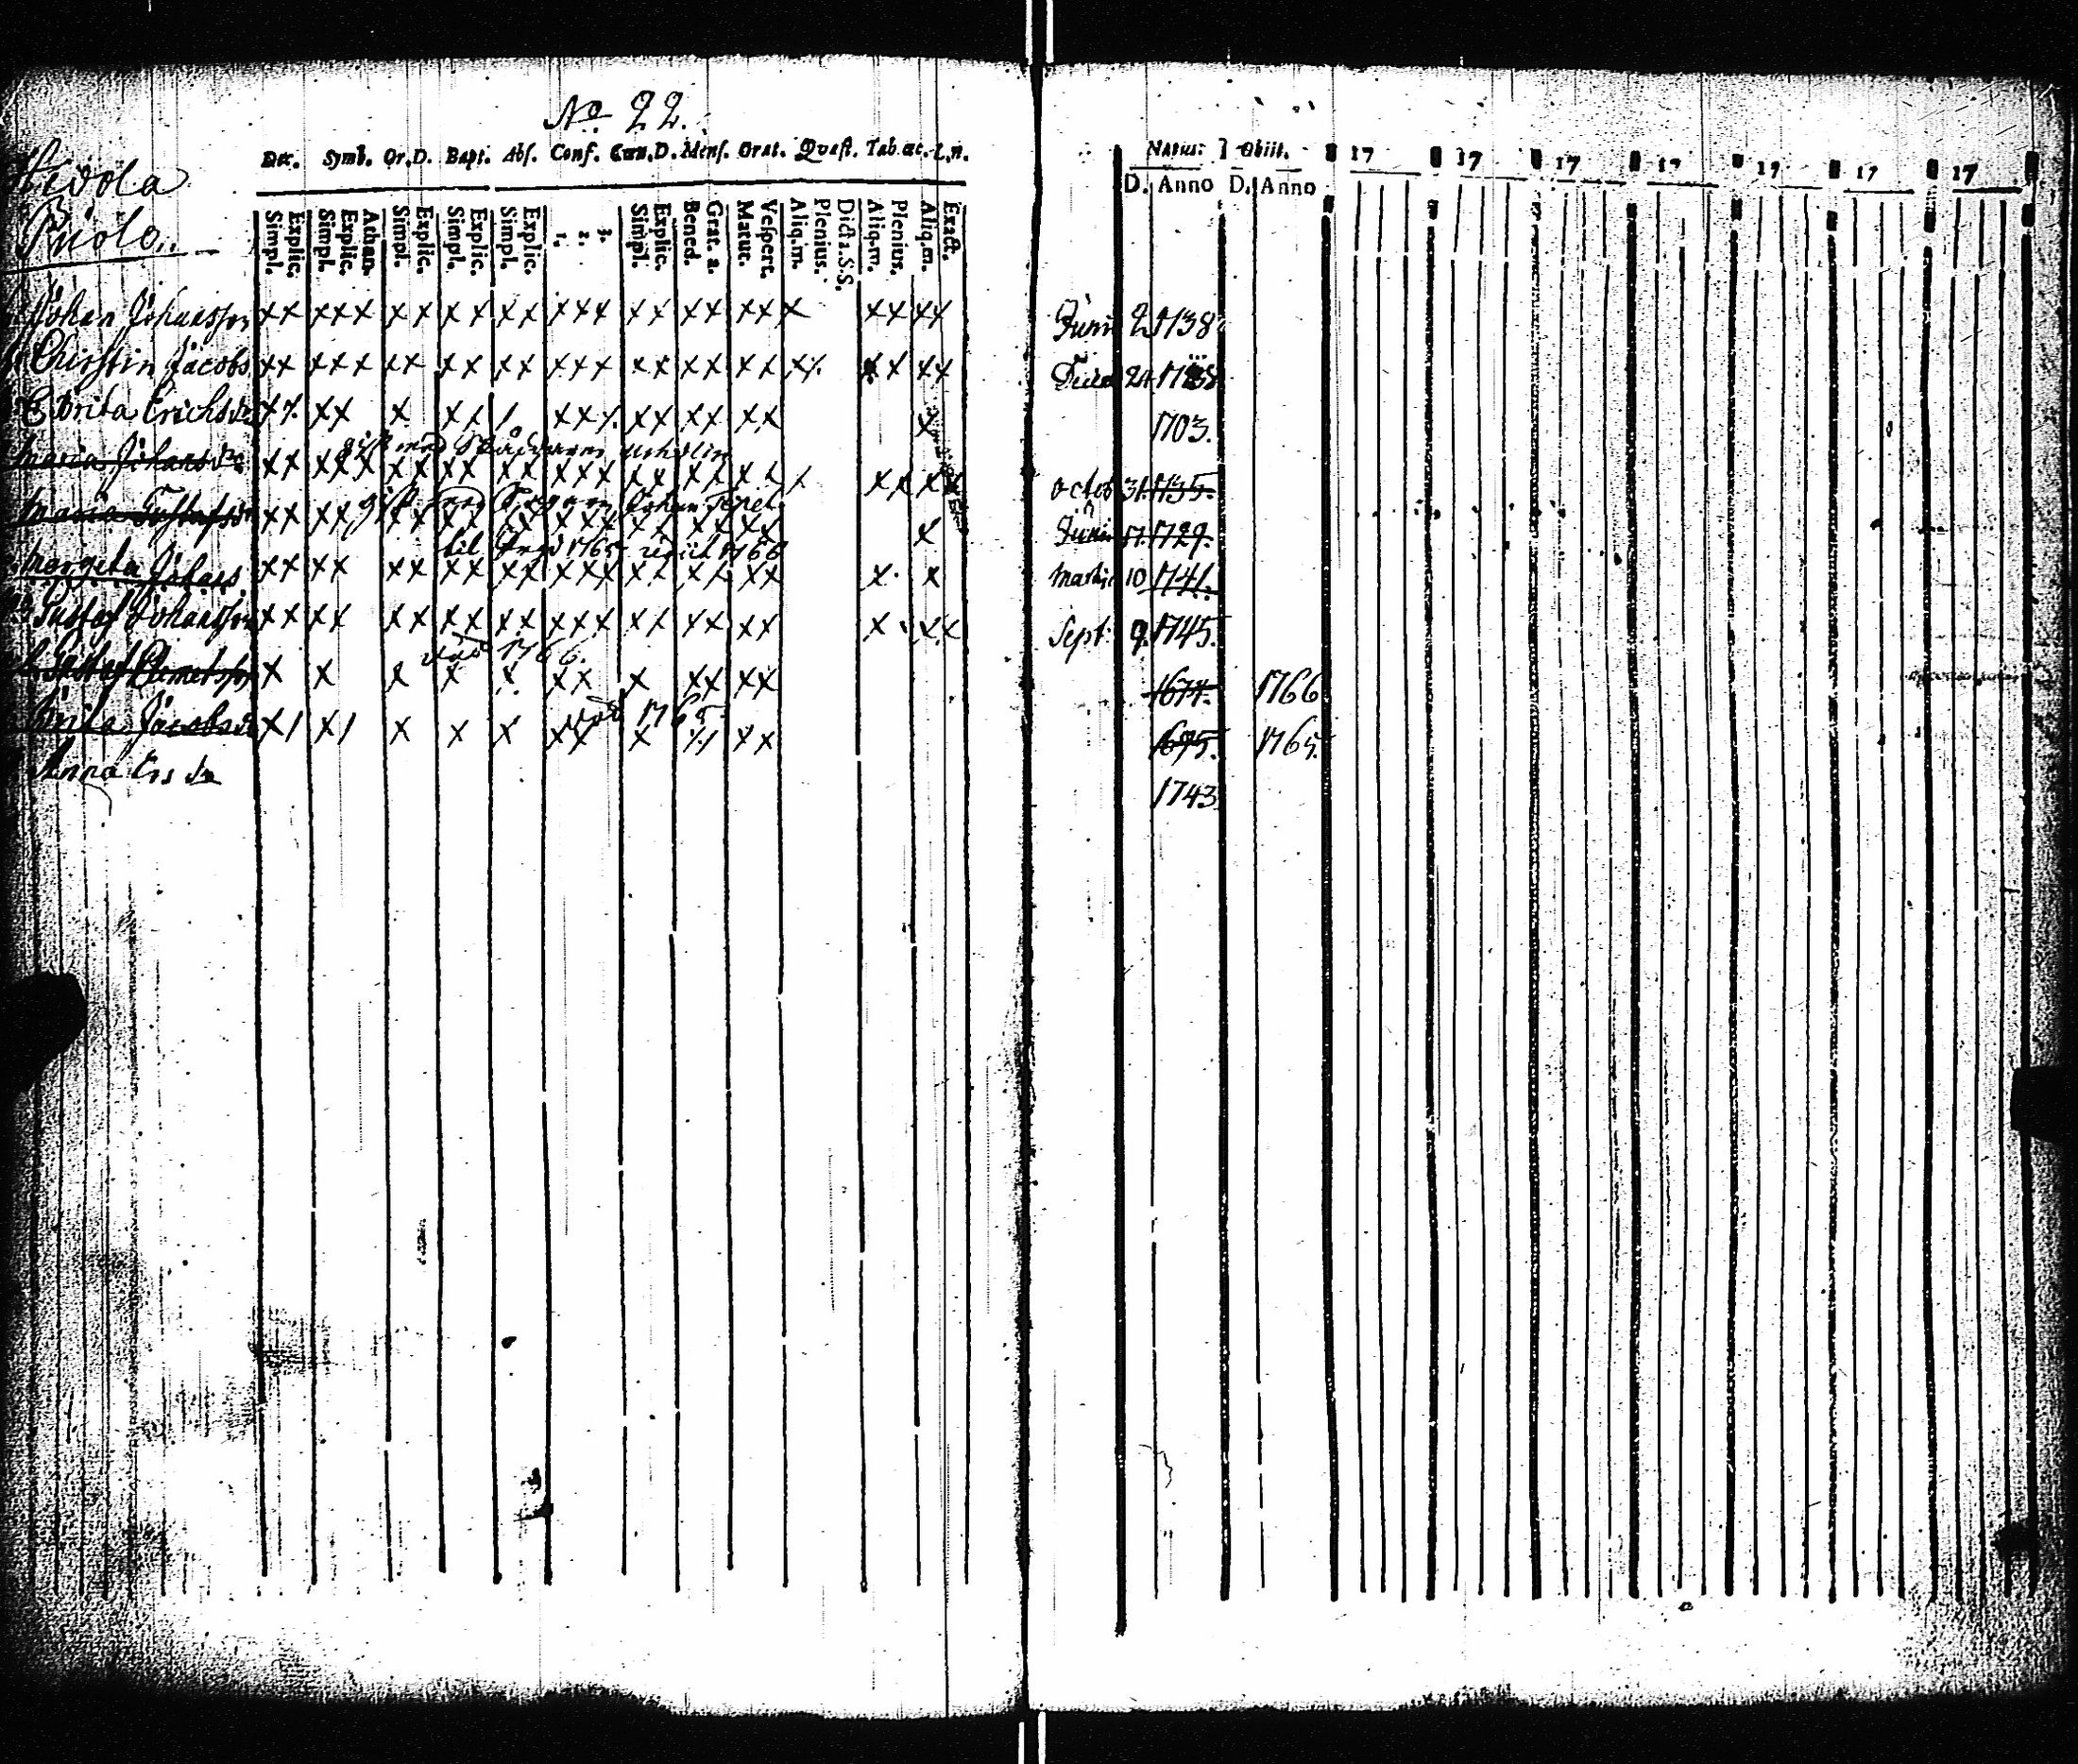 No 22.
Dec. Symb. Or.D. Bapt. Abs. Conf. Cœn.D. Mens. Orat. Quæst. Tab. œc. L.n.
Simpl. Explic. Simpl. Explic. Athan. Simpl. Explic. Simpl. Explic. Simpl. Explic. 1. 2. 3. Simpl. Explic. Bened. Grat. a. Matut. Vespert. Aliq.m. Plenius. Dict. S.S. Aliq.m. Plenius. Aliq.m. Exact.
Natus. Obiit. 17 17 17 17 17 17 17
D. Anno D. Anno
Johan Johansson xx xxx xx xx xx xxx xx xx xx x xx xx Juni 2 1738
Christin Jacobs xx xxx xx xx xx xxx xx xx xx xx xx xx 21
Brita Erichsdr xx xx x xx 1. xxx xx xx xx x 1703.
gift med
Maria Johansdr xx xxx xx xx xx xxx xx xx xx x xx xx octob 31. 1735.
gift Johan
Maria Gustafsdr xx xx xx xx xx xxx xx xx xx x Juni 17. 1729.
til 1765 1766
Margeta Johans xx xx xx xx xx xxx xx xx xx x. x Martii 10 1741.
Gustaf Johansson xx xx xx xx xx xxx xx xx xx x. xx Sept: 9. 1745.
död 1766.
Gustaf Clemetsson x x x x x xx x xx xx 1674. 1766
död 1765
Brita Jacobsdr x/ x/ x x x xx x xx 1695. 1765.
Anna Ers dr 1743